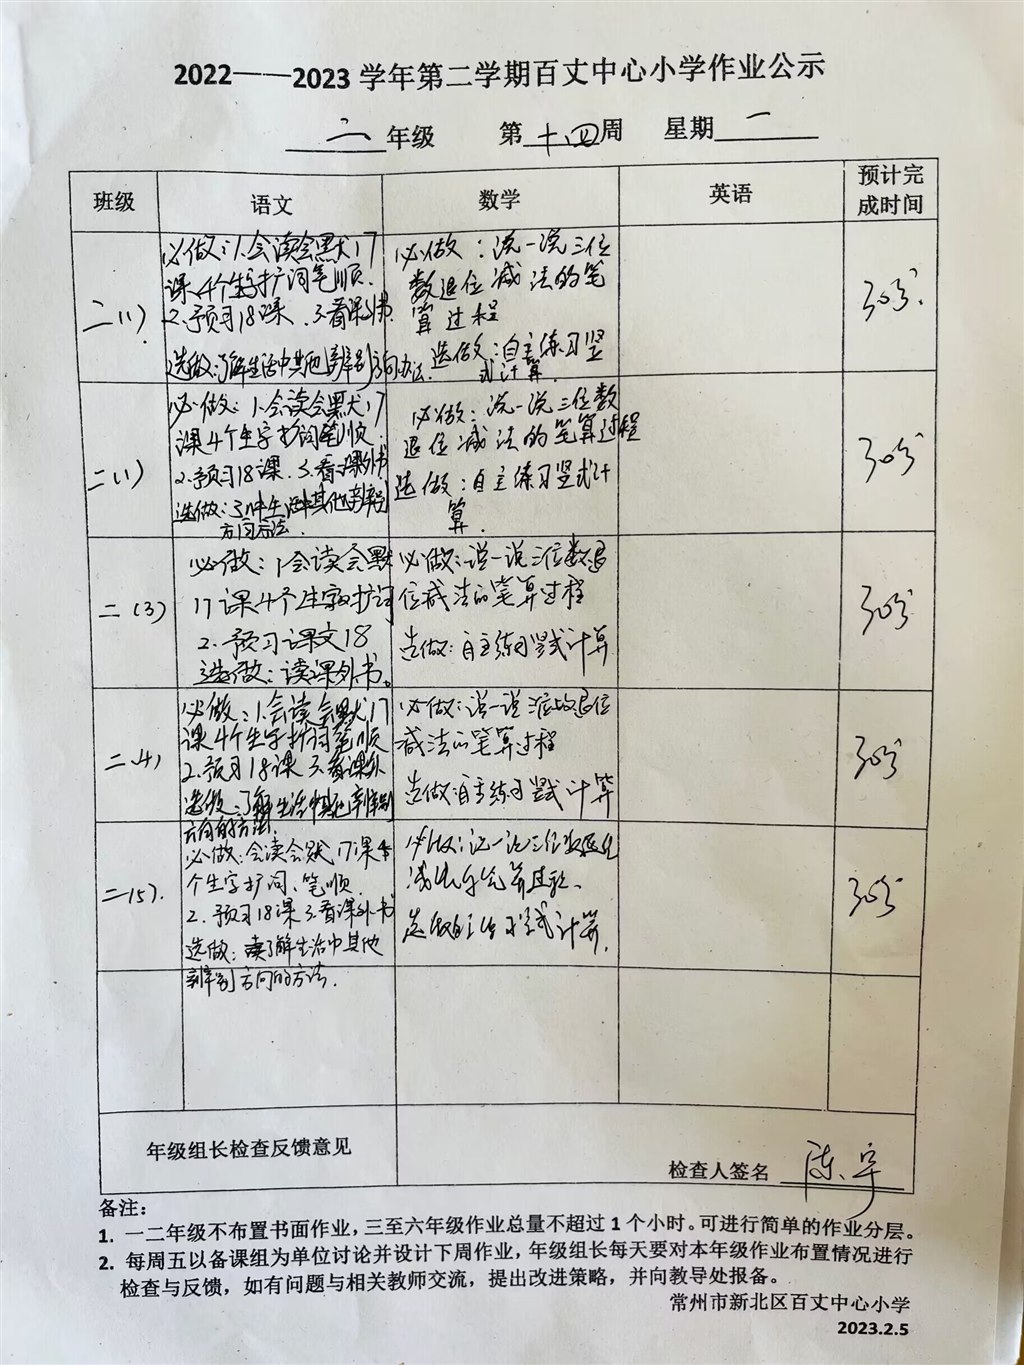 2022——2023 学年第二学期百丈中心小学作业公示
二年级 第十四周 星期一
班级 语文 数学 英语 预计完成时间
二(1)
必做:1.会读会默17
课4个生字扩词笔顺.
2.预习18课.3.看课外书.
选做:了解生活中其他辨别方向办法.
必做:说一说三位
数退位减法的笔
算过程
选做:自主练习竖
式计算.
30分.
二(1)
必做:1.会读会默17
课4个生字扩词笔顺.
2.预习18课.3.看课外书
选做:了解生活中其他辨别
方向方法.
必做:说一说三位数
退位减法的笔算过程
选做:自主练习竖式计
算.
30分
二(3)
必做:1会读会默
17课4个生字扩词
2.预习课文18
选做:读课外书。
必做:说一说三位数退
位减法的笔算过程
选做:自主练习竖式计算
30分
二.(4)
必做:1.会读会默17
课4个生字扩词笔顺
2.预习18课3.看课外
选做:了解生活中其他辨别
方向的方法.
必做:说一说三位数退位
减法的笔算过程
选做:自主练习竖式计算
30分
二(5).
必做:会读会默17课4
个生字扩词、笔顺.
2.预习18课3.看课外书
选做:了解生活中其他
辨别方向的方法.
必做:说一说三位数退位
减法
选做 竖式计算.
30分
年级组长检查反馈意见
检查人签名 陈宇
备注:
1. 一二年级不布置书面作业,三至六年级作业总量不超过1个小时。可进行简单的作业分层。
2. 每周五以备课组为单位讨论并设计下周作业,年级组长每天要对本年级作业布置情况进行
检查与反馈,如有问题与相关教师交流,提出改进策略,并向教导处报备。
常州市新北区百丈中心小学
2023.2.5